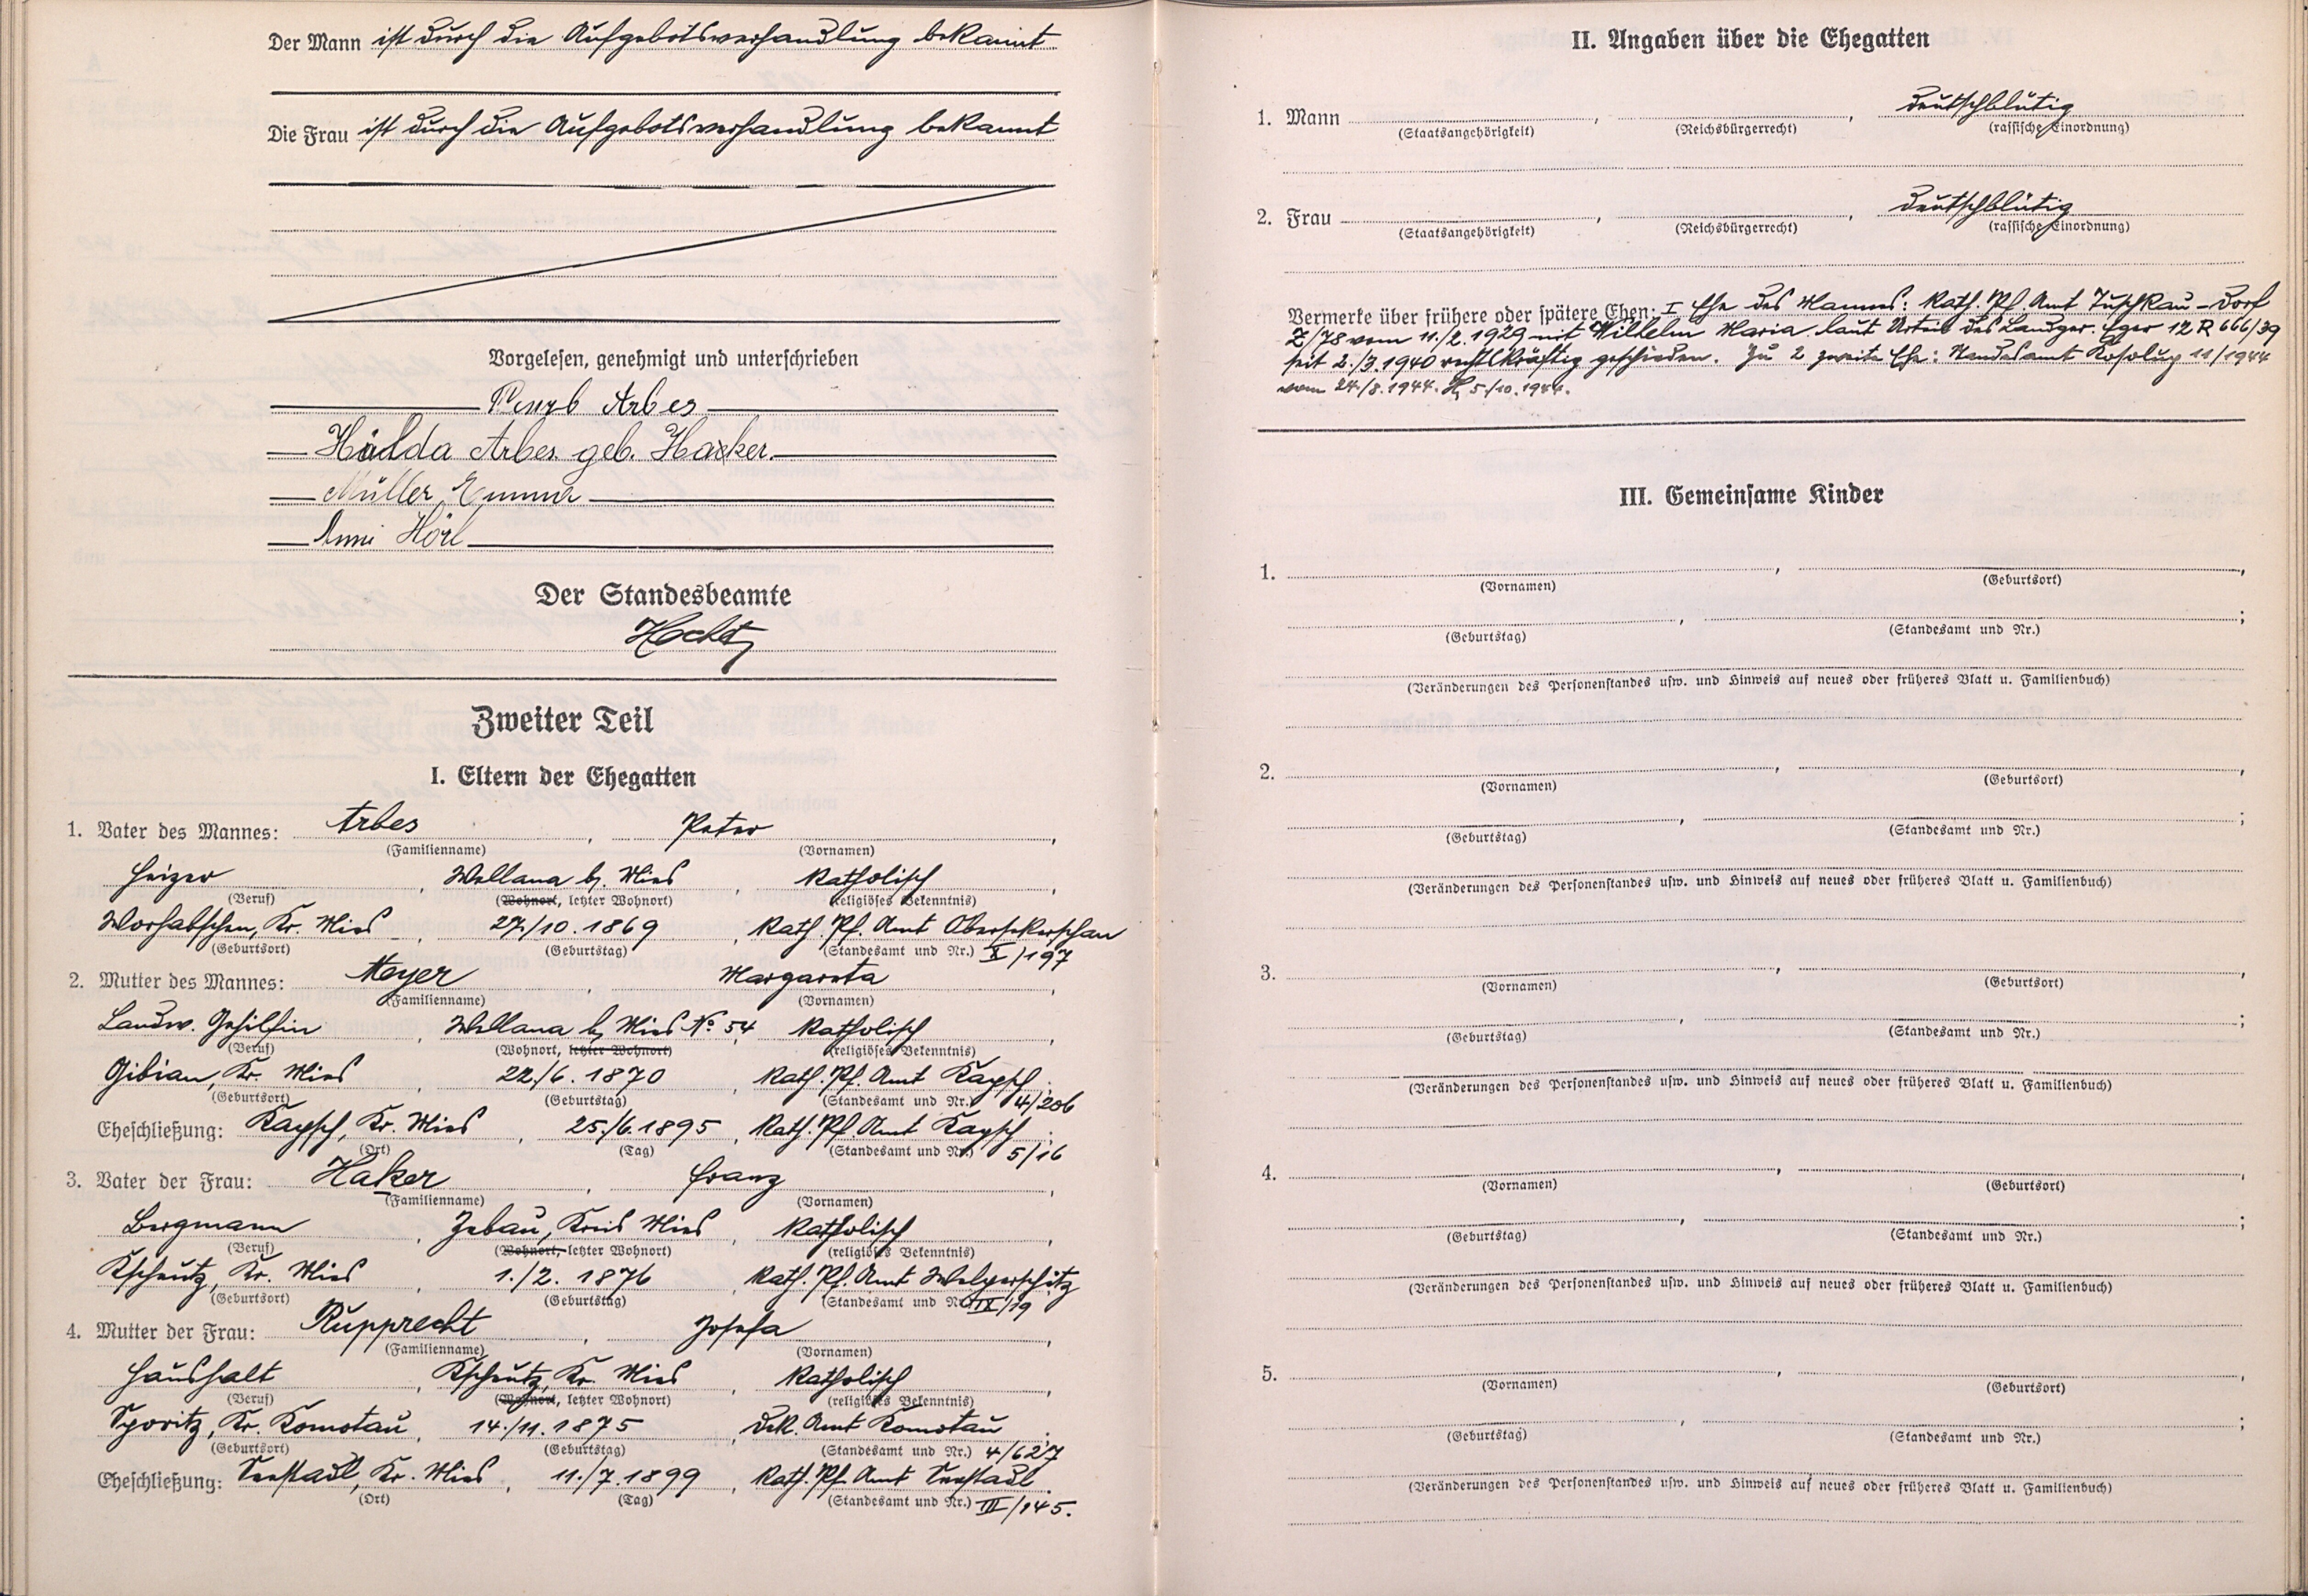 Der Mann ist durch die Aufgebotsverhandlung bekannt
Die Frau ist durch die Aufgebotsverhandlung bekannt
Vorgelesen, genehmigt und unterschrieben
Arbes
Hilda Arbes geb. Hacker.
Müller Emma
Anni Hörl
Der Standesbeamte
Zweiter Teil
I. Eltern der Ehegatten
1. Vater des Mannes: Arbes, Peter,
(Familienname) (Vornamen)
Heizer, Wellana b. Mies, Katholisch,
(Beruf) (Wohnort, letzter Wohnort) (religiöses Bekenntnis)
Worhabschen, Kr. Mies, 27./10. 1869, Kath. Pf. Amt Obersekerschan
(Geburtsort) (Geburtstag) (Standesamt und Nr.) X/197
2. Mutter des Mannes: Meyer, Margareta,
(Familienname) (Vornamen)
Landw. Gehilfin, Wellana b. Mies No. 54, Katholisch,
(Beruf) (Wohnort, letzter Wohnort) (religiöses Bekenntnis)
Gibian, Kr. Mies, 22./6. 1870, Kath. Pf. Amt Kapsch;
(Geburtsort) (Geburtstag) (Standesamt und Nr.) 4/206
Eheschließung: Kapsch, Kr. Mies, 25./6. 1895, Kath. Pf. Amt Kapsch;
(Ort) (Tag) (Standesamt und Nr.) 5/16
3. Vater der Frau: Haker, Franz,
(Familienname) (Vornamen)
Bergmann, Zebau, Kreis Mies, Katholisch,
(Beruf) (Wohnort, letzter Wohnort) (religiöses Bekenntnis)
Kscheutz, Kr. Mies, 1./2. 1876, Kath. Pf. Amt Welperschitz
(Geburtsort) (Geburtstag) (Standesamt und Nr.) IX/19
4. Mutter der Frau: Rupprecht, Josefa,
(Familienname) (Vornamen)
Haushalt, Kscheutz, Kr. Mies, Katholisch,
(Beruf) (Wohnort, letzter Wohnort) (religiöses Bekenntnis)
Sporitz, Kr. Komotau, 14./11. 1875, Dek. Amt Komotau;
(Geburtsort) (Geburtstag) (Standesamt und Nr.) 4/627
Eheschließung: Kr. Mies, 11./7. 1899, Kath. Pf. Amt
(Ort) (Tag) (Standesamt und Nr.) III/145.
II. Angaben über die Ehegatten
1. Mann, , deutschblütig
(Staatsangehörigkeit) (Reichsbürgerrecht) (rassische Einordnung)
2. Frau, , deutschblütig
(Staatsangehörigkeit) (Reichsbürgerrecht) (rassische Einordnung)
Vermerke über frühere oder spätere Ehen: I Ehe des Mannes: Kath. Pf. Amt Tuschkau-Dorf
Z/78 vom 11./2. 1929 mit Wilhelm Maria laut Urteil des Landger. Eger 12 R 666/39
seit 2./3. 1940 rechtskräftig geschieden. Zu 2 zweite Ehe: Standesamt Kosolup 11/1944
vom 24./8. 1944. 5./10. 1944.
III. Gemeinsame Kinder
1. , ,
(Vornamen) (Geburtsort)
, ;
(Geburtstag) (Standesamt und Nr.)
(Veränderungen des Personenstandes usw. und Hinweis auf neues oder früheres Blatt u. Familienbuch)
2. , ,
(Vornamen) (Geburtsort)
, ;
(Geburtstag) (Standesamt und Nr.)
(Veränderungen des Personenstandes usw. und Hinweis auf neues oder früheres Blatt u. Familienbuch)
3. , ,
(Vornamen) (Geburtsort)
, ;
(Geburtstag) (Standesamt und Nr.)
(Veränderungen des Personenstandes usw. und Hinweis auf neues oder früheres Blatt u. Familienbuch)
4. , ,
(Vornamen) (Geburtsort)
, ;
(Geburtstag) (Standesamt und Nr.)
(Veränderungen des Personenstandes usw. und Hinweis auf neues oder früheres Blatt u. Familienbuch)
5. , ,
(Vornamen) (Geburtsort)
, ;
(Geburtstag) (Standesamt und Nr.)
(Veränderungen des Personenstandes usw. und Hinweis auf neues oder früheres Blatt u. Familienbuch)